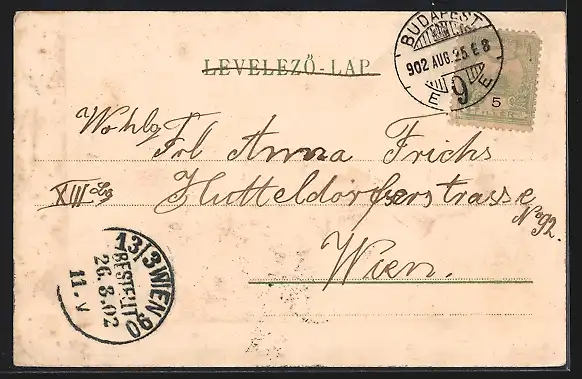 LEVELEZŐ-LAP
BUDAPEST
902 AUG. 25. E 8
9
5
FILLÉR
Wohlg
Frl Anna Frichs
XIII
Hutteldorferstrasse
No 92.
Wien.
13/3 WIEN 90
BESTELLT
26. 8. 02
11. V